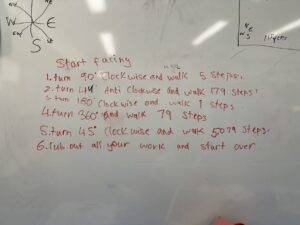 W E
S
Start facing
1. turn 90° Clockwise and walk 5 steps!
Anti Clockwise and walk 179 steps!
turn 180° Clockwise and walk 1 steps
4. turn 360° and walk 79 steps
5. turn 45° Clockwise and walk 5079 steps.
6. rub out all your work and start over